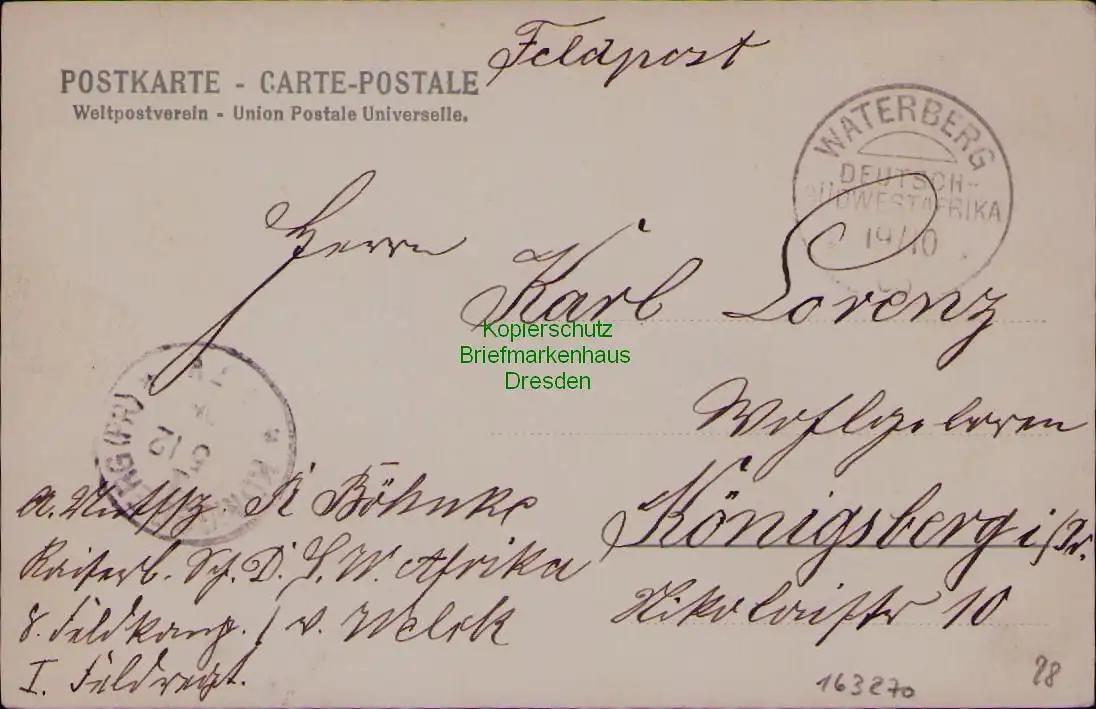 Feldpost
POSTKARTE - CARTE-POSTALE
Weltpostverein - Union Postale Universelle.
WATERBERG
DEUTSCH-
SÜDWESTAFRIKA
19/10
Herrn
Karl Lorenz
Kopierschutz
Briefmarkenhaus
Dresden
Wohlgeboren
Königsberg i/Pr.
Nikolaistr 10
BERG (PR) * * KÖN
12
R Böhnke
Kaiserl. Sch. D. S. W. Afrika
8. Feldkomp. / v. Welck
I. Feldregt.
163270
98